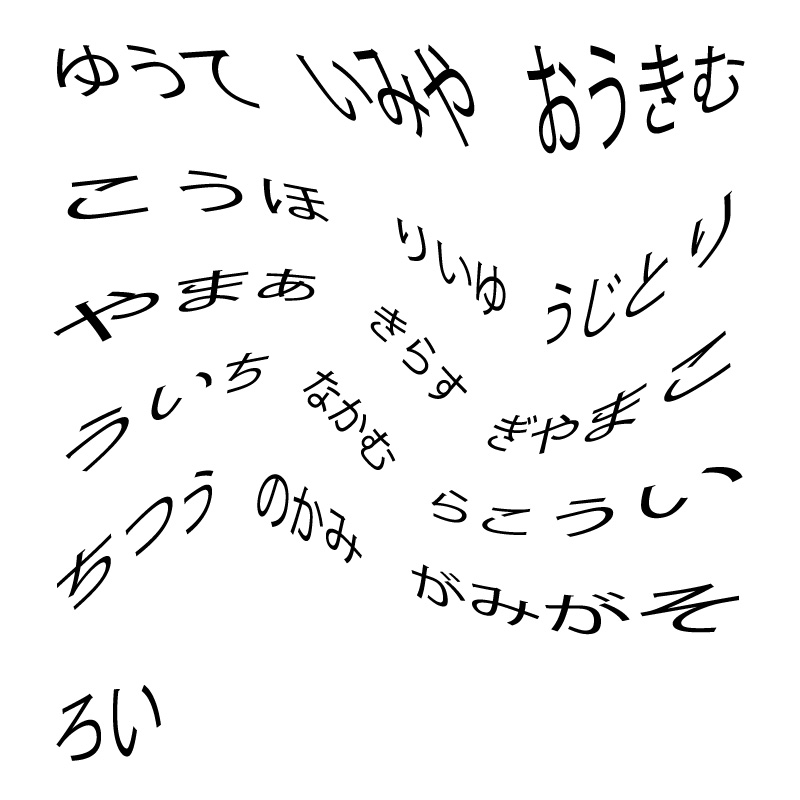 ゆうて いみや おうきむ
こうほ りいゆ うじとり
やまあ きらす ぎやまこ
ういち なかむ らこうい
ちつう のかみ がみがそ
ろい